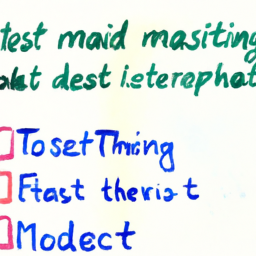 test maid masiting
alst dest isteraphat
TosetTming
Ftast therist
Modect